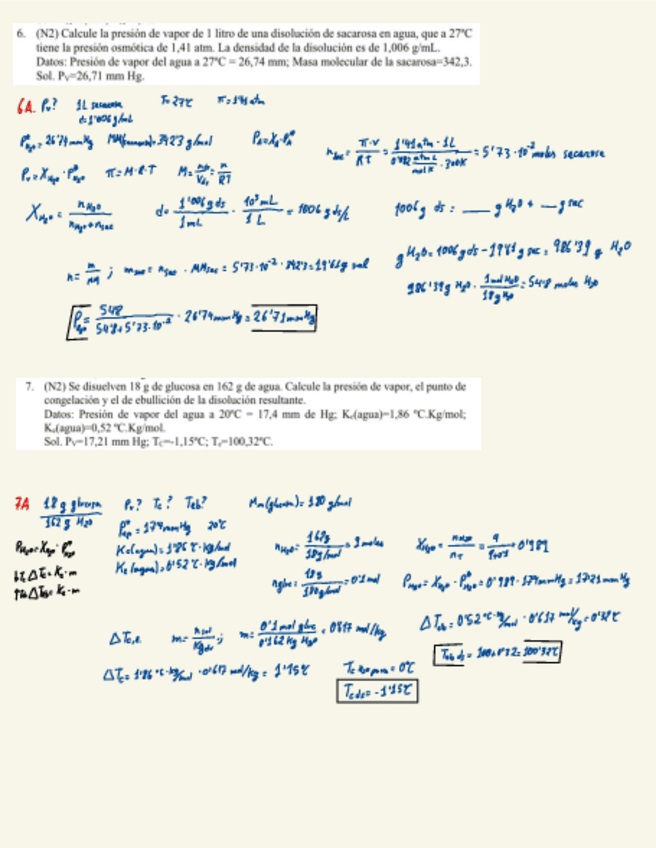 6. (N2) Calcule la presión de vapor de 1 litro de una disolución de sacarosa en agua, que a 27ºC
tiene la presión osmótica de 1,41 atm. La densidad de la disolución es de 1,006 g/mL.
Datos: Presión de vapor del agua a 27ºC = 26,74 mm; Masa molecular de la sacarosa=342,3.
Sol. Pv=26,71 mm Hg.
6A. Pv? 1L sacarosa T= 27ºC π=1'41 atm
d=1'006 g/mL
P°H2O = 26'74 mmHg MM(sacarosa)=342'3 g/mol PA=XA·P°A
nsac = π·V / RT = 1'41 atm · 1L / 0'082 atm·L/mol·K · 300K = 5'73·10^-2 moles sacarosa
Pv=XH2O · P°H2O π=M·R·T
XH2O = nH2O / nH2O+nsac d= 1'006 g ds / 1mL · 10³ mL / 1L = 1006 g ds/L
1006 g ds : __ g H2O + __ g sac
n= m/MM ; msac = nsac · MMsac = 5'73·10^-2 · 342'3 = 19'61 g
g H2O = 1006 g ds - 19'61 g sac = 986'39 g H2O
986'39 g H2O · 1 mol H2O / 18 g H2O = 54'8 moles H2O
P= 54'8 / 54'8+5'73·10^-2 · 26'74 mmHg = 26'71 mmHg
7. (N2) Se disuelven 18 g de glucosa en 162 g de agua. Calcule la presión de vapor, el punto de
congelación y el de ebullición de la disolución resultante.
Datos: Presión de vapor del agua a 20ºC = 17,4 mm de Hg; Kc(agua)=1,86 ºC.Kg/mol;
Ke(agua)=0,52 ºC.Kg/mol.
Sol. Pv=17,21 mm Hg; Tc=-1,15ºC; Te=100,32ºC.
7A 18 g glucosa / 162 g H2O Pv? Tc? Teb? Mm(glucosa)= 180 g/mol
P° = 17'4 mmHg 20ºC
Kc(agua)= 1'86 ºC·kg/mol
Ke(agua)= 0'52 ºC·kg/mol
nH2O= 162g / 18g/mol = 9 moles
XH2O = nH2O / nT = 9 / 9+0'1 = 0'989
nglu= 18g / 180g/mol = 0'1 mol
PH2O = XH2O · P°H2O = 0'989 · 17'4 mmHg = 17'21 mmHg
ΔTc,e m= nsol / kg ; m= 0'1 mol gluc / 0'162 kg H2O = 0'617 mol/kg
ΔTeb = 0'52 ºC·kg/mol · 0'617 mol/kg = 0'32ºC
Teb ds = 100+0'32= 100'32ºC
ΔTc= 1'86 ºC·kg/mol · 0'617 mol/kg = 1'15ºC
Tc = 0ºC
Tc ds= -1'15ºC